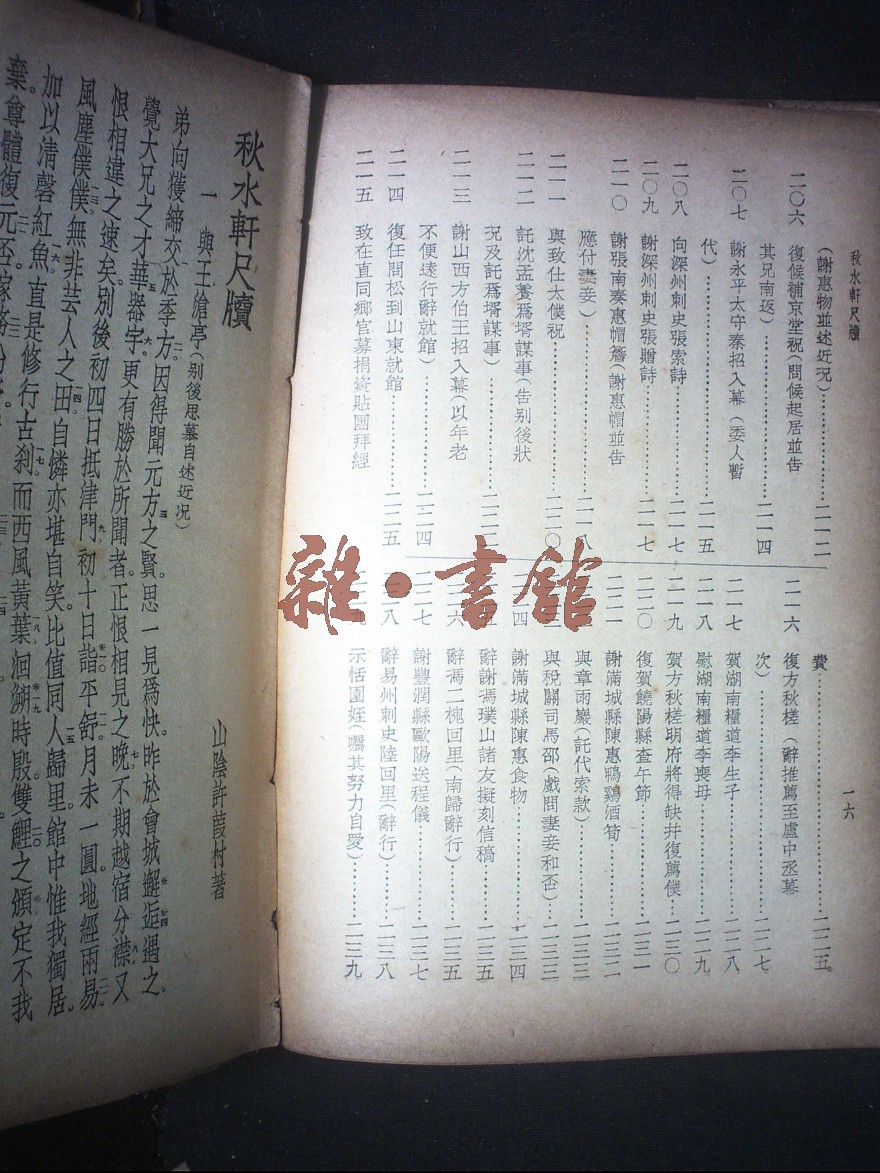 秋水軒尺牘
一六
(謝惠物並述近況)……二一二
二〇六 復候補京堂祝(問候起居並告
其兄南返)……二一四
二〇七 謝永平太守秦招入幕(委人暫
代)……二一五
二〇八 向深州刺史張索詩……二一七
二〇九 謝深州刺史張贈詩……二一七
二一〇 謝張南秦惠帽簷(謝惠帽並告
應付妻妾)……二一八
二一一 與致仕太僕祝……二二〇
二一二 託沈孟養爲壻謀事(告别後狀
況及託爲壻謀事)……二二
二一三 謝山西方伯王招入幕(以年老
不便遠行辭就館)……二二四
二一四 復任問松到山東就館……二二五
二一五 致在直同鄉官募捐貼團拜經
費……二二五
二一六 復方秋槎(辭推薦至盧中丞幕
次)……二二七
二一七 賀湖南糧道李生子……二二八
二一八 慰湖南糧道李喪母……二二九
二一九 賀方秋槎明府將得缺幷復薦僕……二三〇
二二〇 復賀饒陽縣查午節……二三一
二二一 謝滿城縣陳惠鴨鷄酒筍……二三二
與章雨巖(託代索款)……二三三
與稅關司馬邵(戲問妻妾和否)……二三三
謝滿城縣陳惠食物……二三四
辭謝馮璞山諸友擬刻信稿……二三五
辭馮二槐回里(南歸辭行)……二三五
二二七 謝豐潤縣歐陽送程儀……二三七
二二八 辭易州刺史陸回里(辭行)……二三八
示恬園姪(囑其努力自愛)……二三九
雜·書館
秋水軒尺牘
山陰許葭村著
一 與王滄亭(别後思慕自述近況)
弟向獲締交於季方因得聞元方之賢思一見爲快昨於會城邂逅遇之
覺大兄之才華器宇更有勝於所聞者正恨相見之晚不期越宿分襟又
恨相違之速矣別後初四日抵津門初十日詣平舒月未一圓地經兩易
風塵僕僕無非芸人之田自憐亦堪自笑比值同人歸里館中惟我獨居
加以清磬紅魚直是修行古刹而西風黃葉洄溯時殷雙鯉之頒定不我
棄尊體復元否